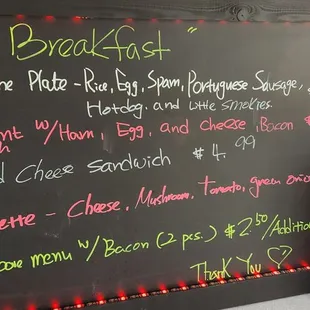 Breakfast "
ne Plate - Rice, Egg, Spam, Portuguese Sausage,
Hotdog. and Little smokies.
w/Ham, Egg, and cheese, Bacon $
Cheese Sandwich $4.99
ette - Cheese, Mushroom, tomato, green onio
menu w/Bacon (2 pcs.) $2.50/Addition
Thank You ♡